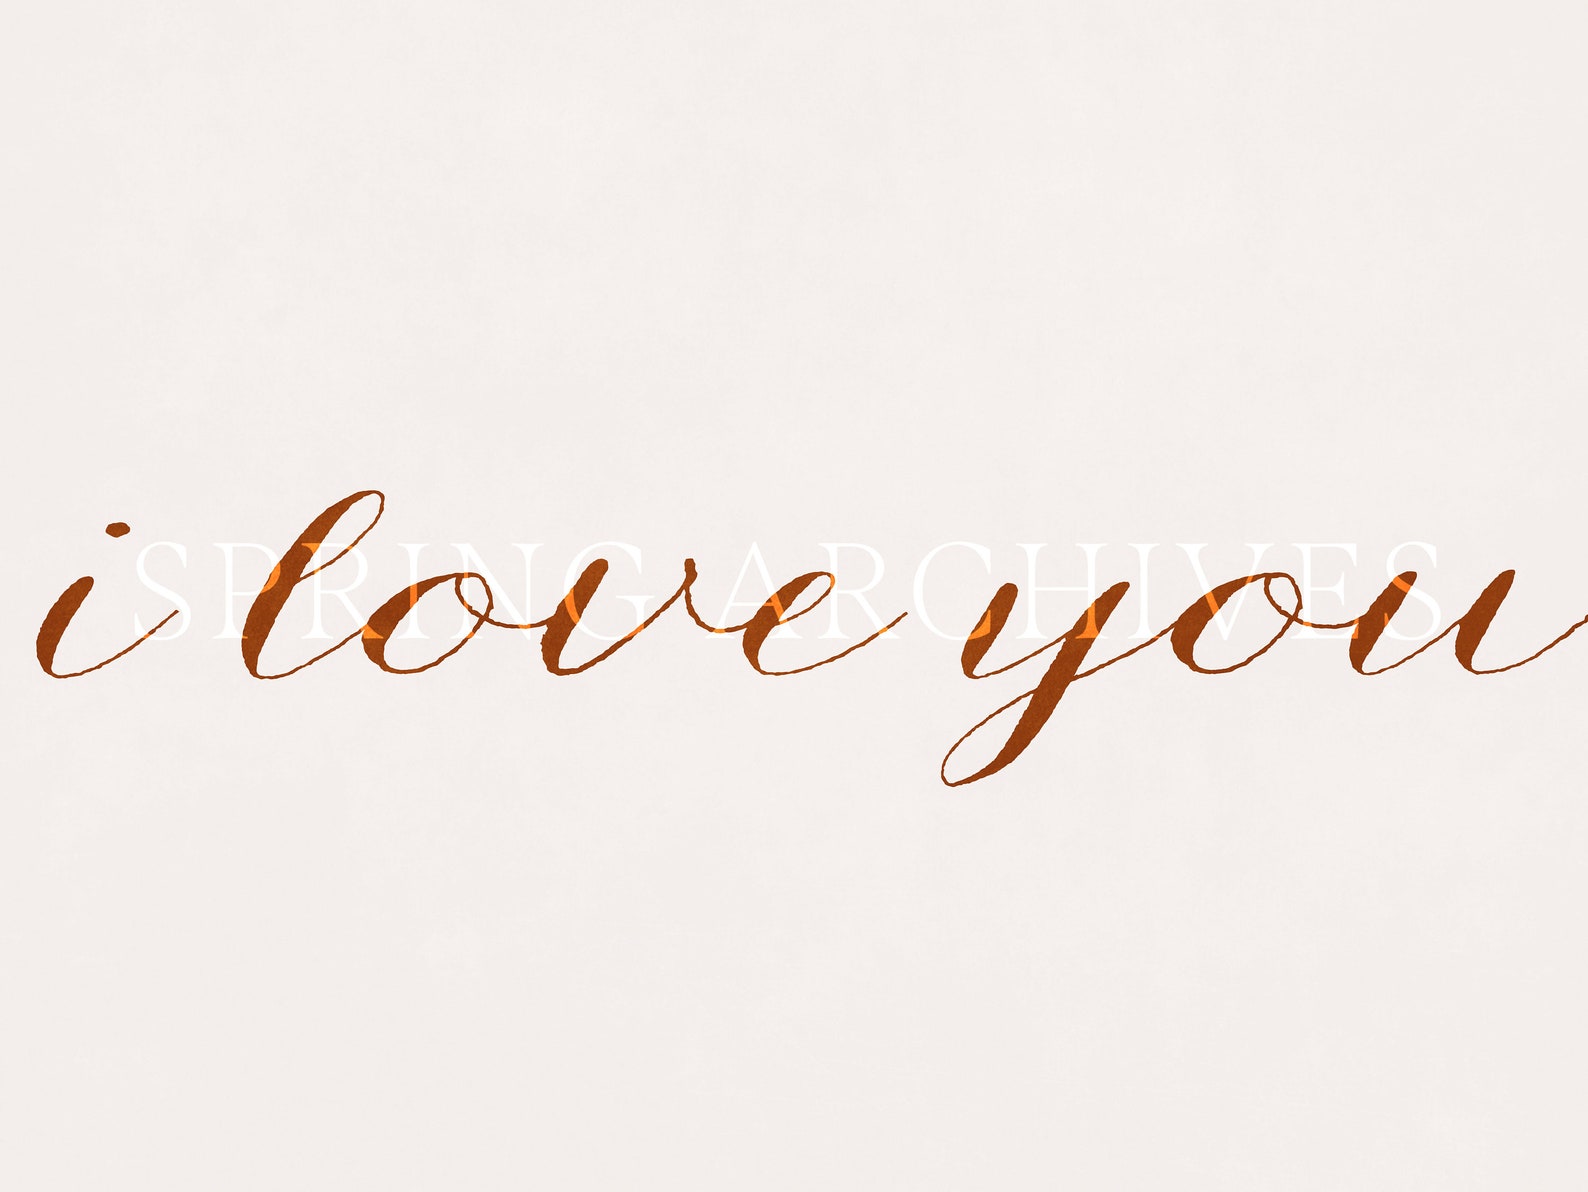 i love you
SPRING ARCHIVES